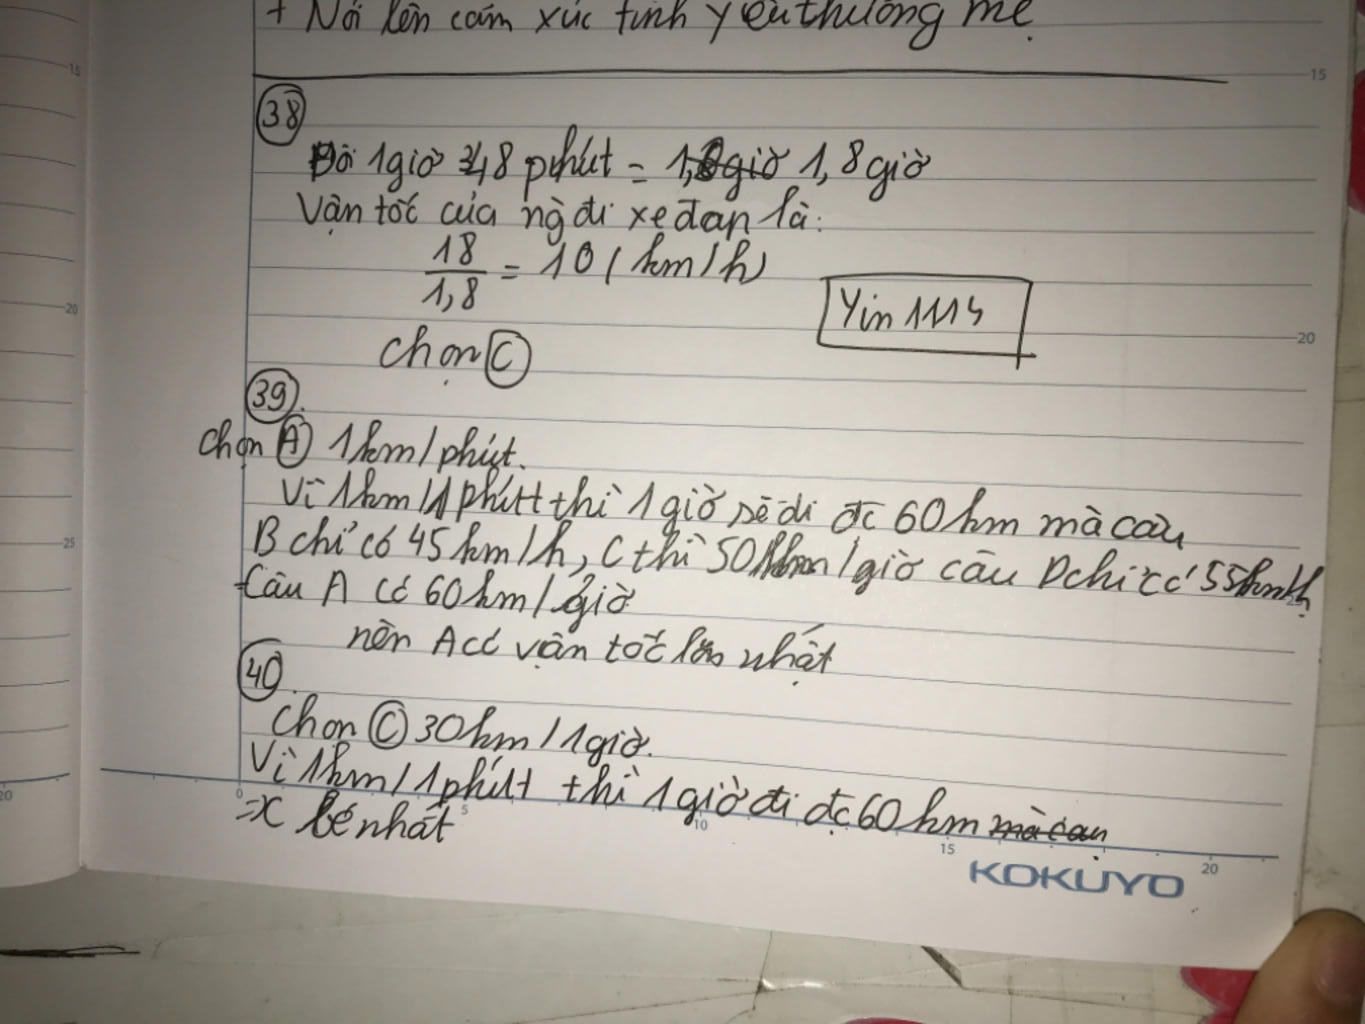 + Nói lên cảm xúc tình yêu thương mẹ.
15
15
38
Đổi 1 giờ 48 phút = 1,8 giờ 1,8 giờ
Vận tốc của ng đi xe đạp là:
18/1,8 = 10 (km/h)
Yin1114
20
20
chọn C
39.
chọn A 1km/phút.
Vì 1km/1 phút thì 1 giờ sẽ đi đc 60km mà câu
25
B chỉ có 45km/h, C thì 50km/giờ câu D chỉ có 55km/h
Câu A có 60km/giờ
nên A có vận tốc lớn nhất
40.
chọn C 30km/1giờ.
Vì 1km/1phút thì 1 giờ đi đc 60km mà câu
=> C bé nhất
20
0 5 10 15 20
KOKUYO